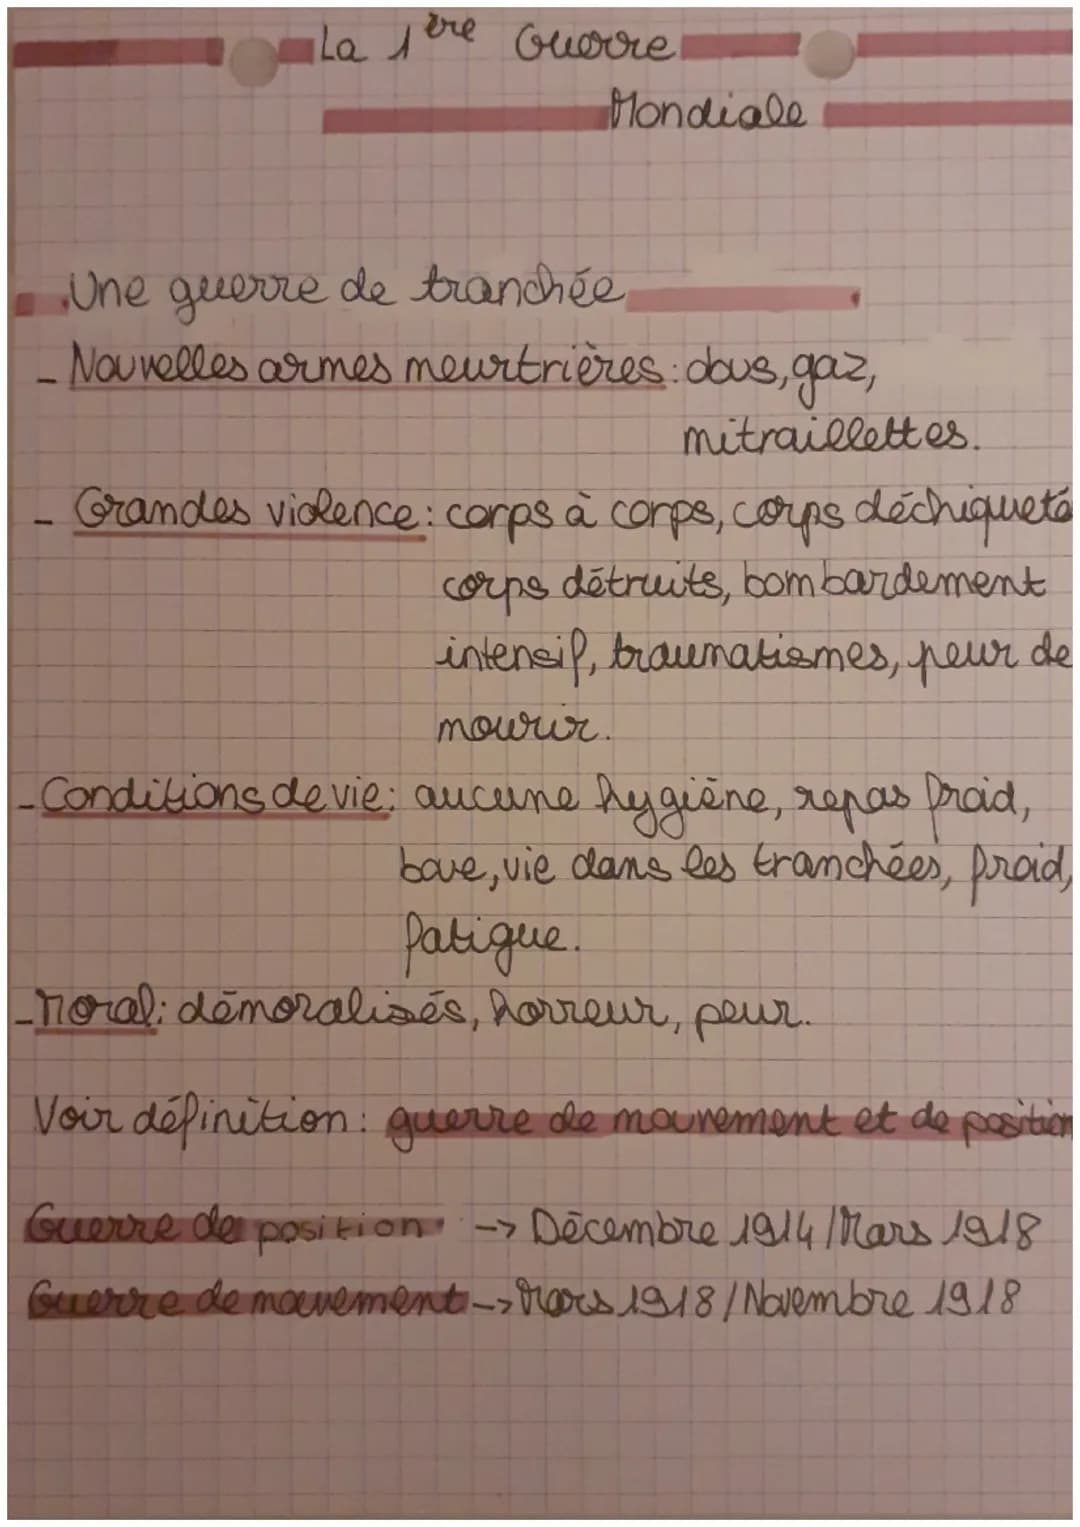 La 1ère Guerre
Mondiale
Une guerre de tranchée
- Nouvelles armes meurtrières : obus, gaz,
mitraillettes.
- Grandes violence : corps à corps, corps déchiqueté
corps détruits, bombardement
intensif, traumatismes, peur de
mourir.
- Conditions de vie : aucune hygiène, repas froid,
boue, vie dans les tranchées, froid,
fatigue.
- Moral : démoralisés, horreur, peur.
Voir définition : guerre de mouvement et de position
Guerre de position -> Décembre 1914/Mars 1918
Guerre de mouvement -> Mars 1918/Novembre 1918